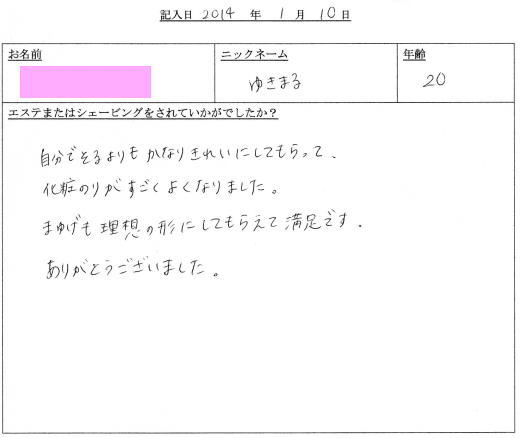 記入日 2014 年 1 月 10 日
お名前 ニックネーム 年齢
ゆきまる 20
エステまたはシェービングをされていかがでしたか？
自分でそるよりもかなりきれいにしてもらって、
化粧のりがすごくよくなりました。
まゆげも理想の形にしてもらえて満足です。
ありがとうございました。